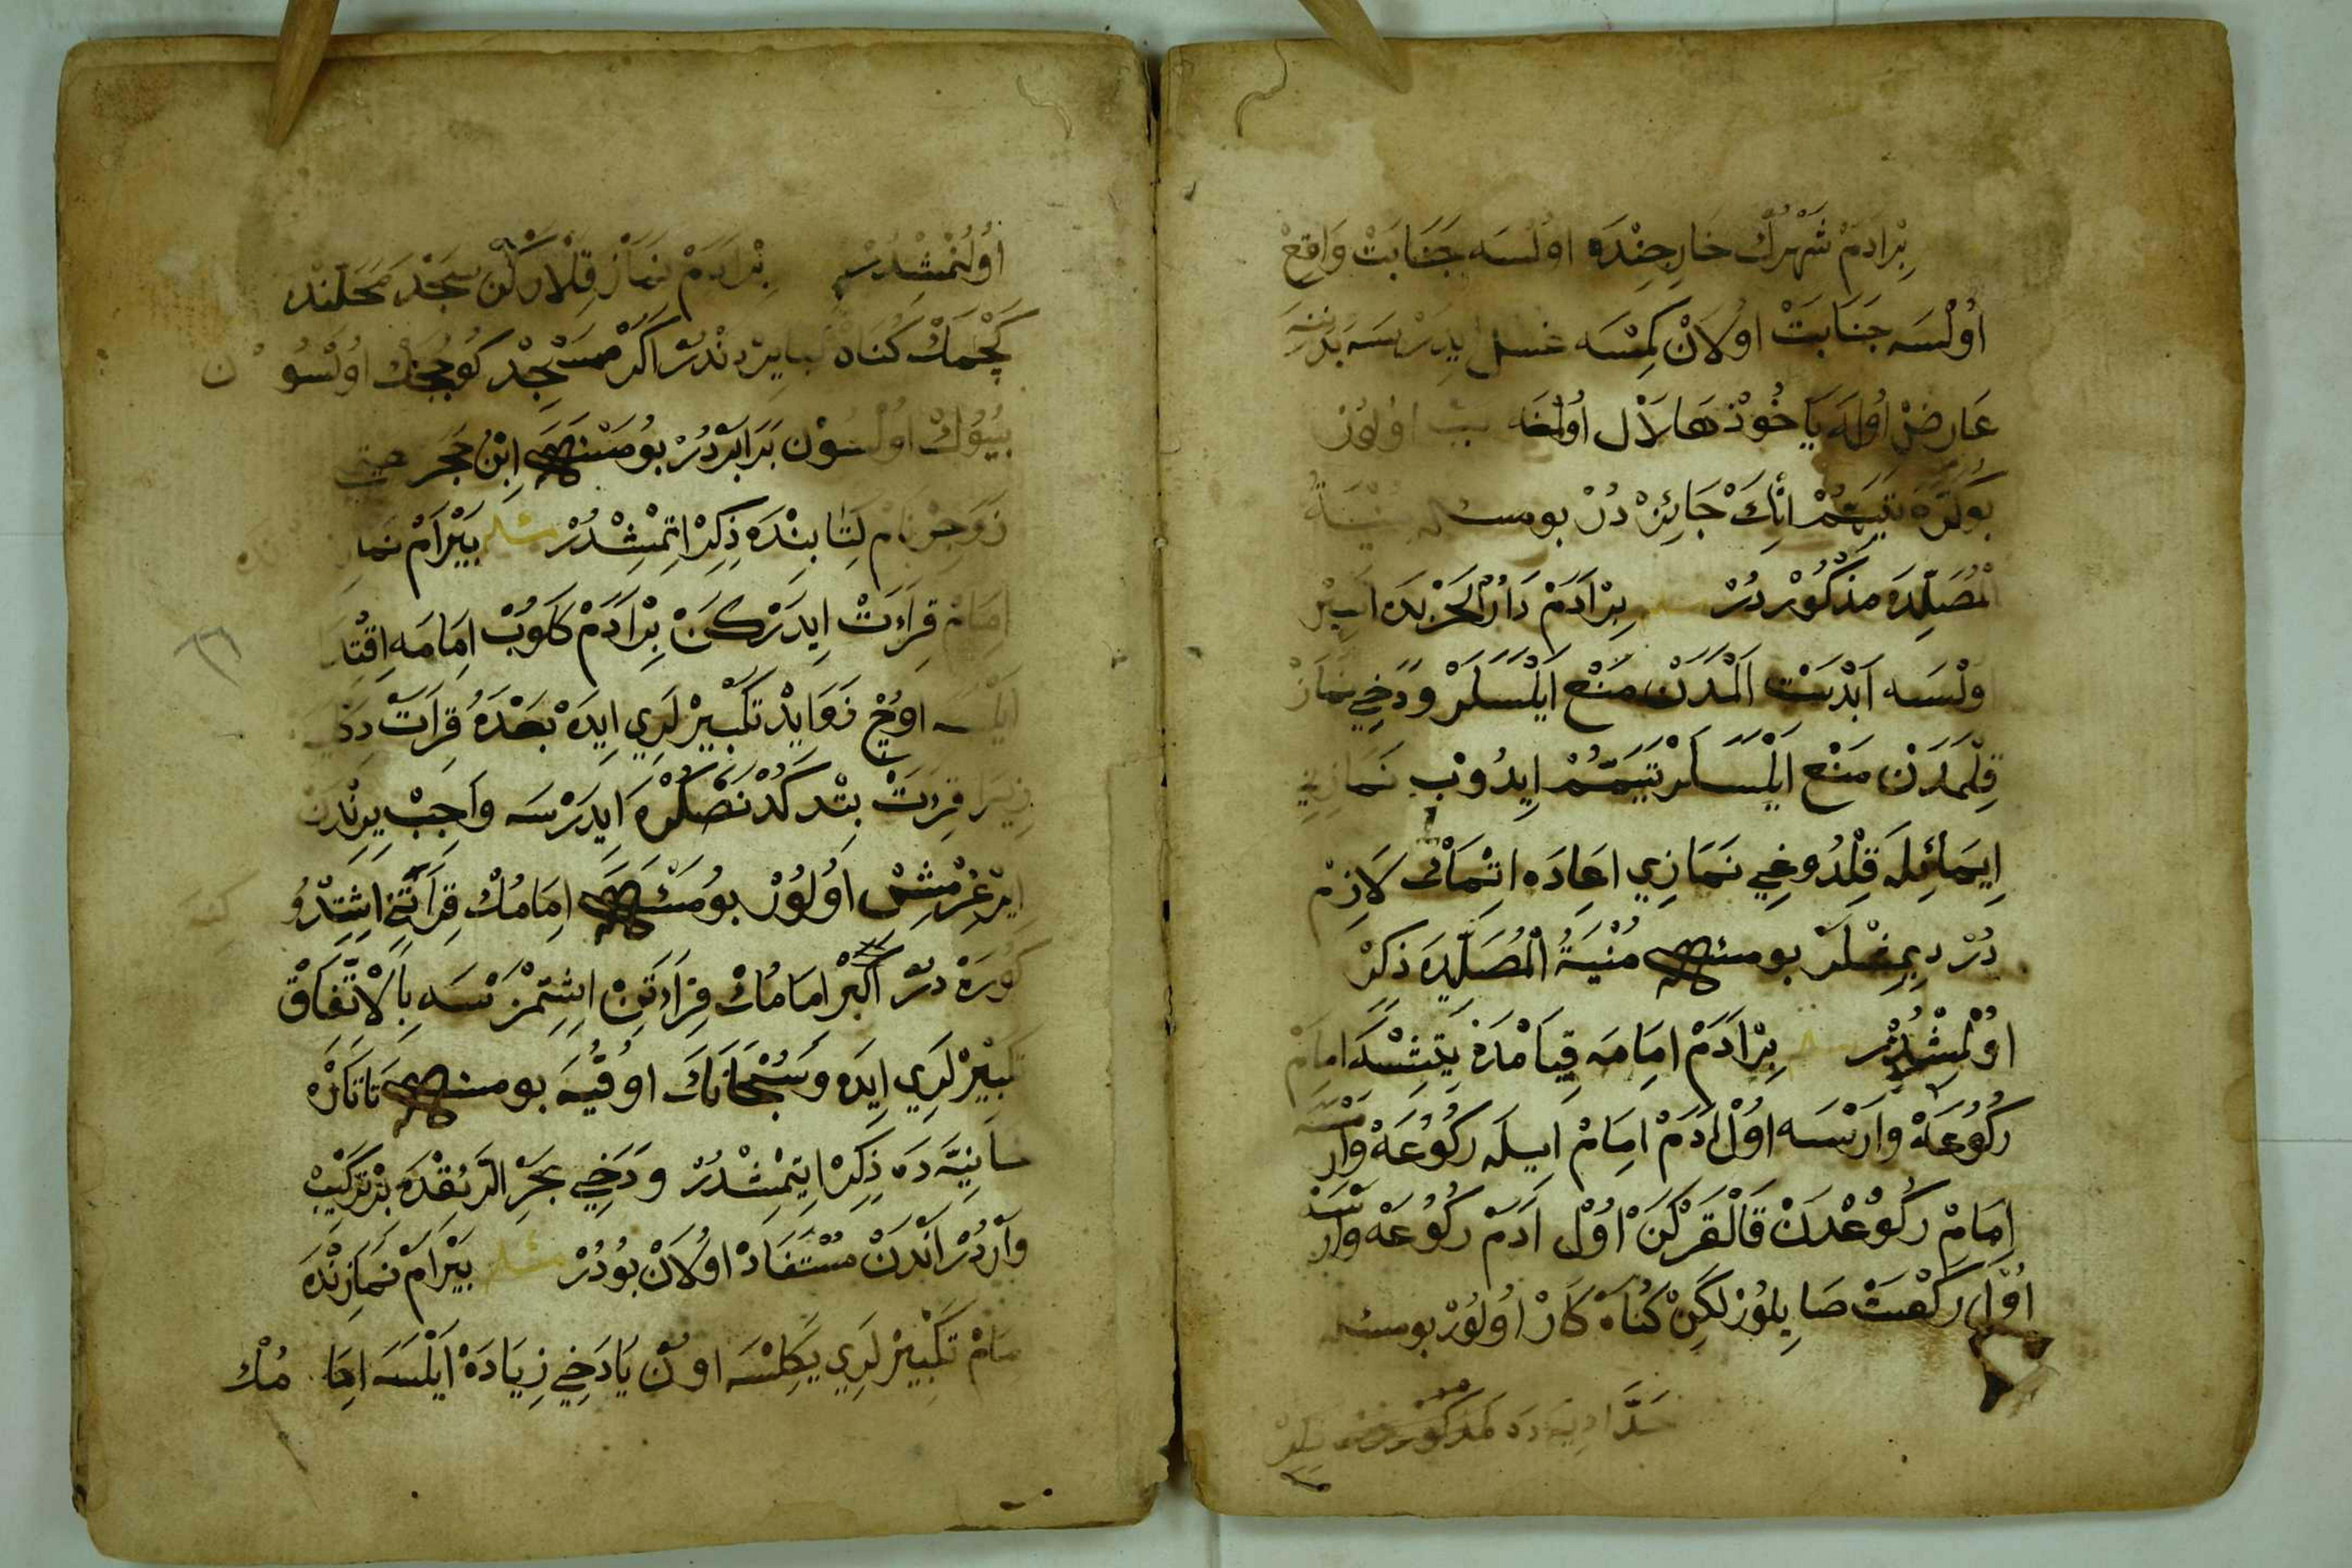 بِرْ اَدَمْ شَهْرُكْ خَارِجِنْدَه اولْسَه جَنَابَتْ وَاقِعْ
اُولْسَه جَنَابَتْ اولَانْ كِمْسَه غسل ايدَرْسَه بَدَنِنَه
عَارِضْ اُولَه يَا خُوذْ هَلَاكْ اُولْمَه اولُورْ
بُونْلَرَه تَيَمُّمْ انِكْ جَائِزْ دُرْ بو مسئله مُنْيَةُ
الْمُصَلِّيدَه مَذْكُورْ دُرْ بِرْ اَدَمْ دَارُ الْحَرْبَدَه اَسِيرْ
اولْسَه اَبْدَسْت اَلْمَدَنْ مَنْع اَيْلَسَلَرْ وَدَخِي نَمَازْ
قِلْمَدَنْ مَنْع اَيْلَسَلَرْ تَيَمُّمْ ايدُوبْ نَمَازِي
اِيمَائِلَه قِلْدُوغِي نَمَازِي اعَادَه اتْمَك لَازِمْ
دُرْ ديمِشْلَرْ بو مسئله مُنْيَةُ الْمُصَلِّيدَه ذِكِرْ
اوُلْنمِشْدُرْ بِرْ اَدَمْ امَامَه قِيَامْدَه يَتِشْسَه امَامْ
رُكُوعَهْ وَارْسَه اوُلْ اَدَمْ امَامْ ايلَه رُكُوعَهْ وَارْمَسَه
اِمَامْ رُكُوعْدَنْ قَالْقَرْكَنْ اوُلْ اَدَمْ رُكُوعَهْ وَارْسَه
اوُلْ رَكْعَتْ صَايِلُورْ لَكِنْ كُنَاهْ كَارْ اُولُورْ بو مسئله
اوُلُنْمِشْدُرْ بِرْ اَدَمْ نَمَازْ قِلَارْكَنْ سَجْدَه مَحَلِّنْدَن
كَچْمَكْ كُنَاهْ كَبَايِرْدِنْدُرْ اَكَرْ مَسْجِدْ كُوجُكْ اوُلْسُون
بُيُوكْ اوُلْسُونْ بَرَابَرْدُرْ بُو مَسْئَلَه يِ ابْنُ حَجَر
زَوَاجِرْ نَامْ كِتَابِنْدَه ذِكِرْ اتِمْشْدُرْ مسئله بَيْرَامْ نَمَازِنْدَه
امَامْ قِرَاءَتْ ايدَرْكَنْ بِرْ اَدَمْ كَلُوبْ امَامَه اقْتِدَا
اَيْلَسَه اوُچْ زَوَايِدْ تَكْبِيرْلَرِي ايدَه بَعْدَهُ قِرَاَتْ
زِيرَا قِرَاءَتْ بِتْدِكْدَنْصُكْرَه ايدَرْسَه وَاجِبْ يِرِنْدَنْ
ايرْغُرْمِشْ اوُلُورْ بو مَسْئَلَه اِمَامُكْ قِرَاَتِّنِي اشِتْدُو كِنَه
كُورَه دُرْ اَكَرْ امَامُكْ قِرَاءَتِنْ اشِتِمْزْسَه بِالْاِتِّفَاقْ
تَكْبِيرْلَرِي ايدَه وَسُبْحَانَكَ اوقُيَه بو مسئله يِ تَاتَارْ
خَانِيَّه دَه ذِكِرْ ايتِمْشْدُرْ وَدَخِي بَحْرُ الرَّائِقْدَه بِرْ تَرْكِيبْ
وَارْدُرْ اَنْدَنْ مُسْتَفَادْ اوُلَانْ بُودُرْ مسئله بَيْرَامْ نَمَازِنْدَه
امَامْ تَكْبِيرْلَرِي يَكِلْسَه اونْ يَا دَخِي زِيَادَه اَيْلَسَه امَامُكْ